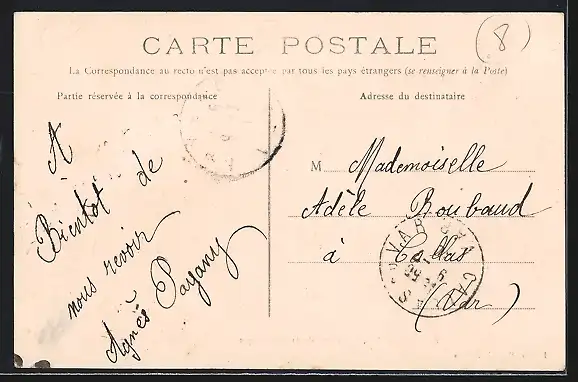 (8)
CARTE POSTALE
La Correspondance au recto n'est pas acceptée par tous les pays étrangers (se renseigner à la Poste)
Partie réservée à la correspondance
Adresse du destinataire
A
Bientot de
nous revoir
Agnès Payany
M Mademoiselle
Adèle Roubaud
à Callas
(Var)
CALLAS
VAR